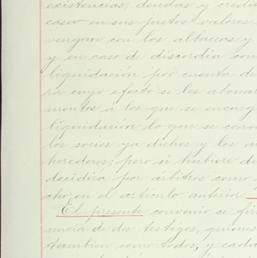 existencias, deudas y credi
caso en sus justos valores
vengan con los albaceas y
y en caso de discordia con
liquidación por cuenta de
ra cuyo efecto se les abonar
montos a los que se encarg
liquidación lo que se conv
los socios ya dichos y los a
herederos; pero si hubiere d
decidirá por árbitros como
cho en el artículo anterior
El presente convenio se fir
sencia de dos testigos, quienes
tambien como todos, y cada